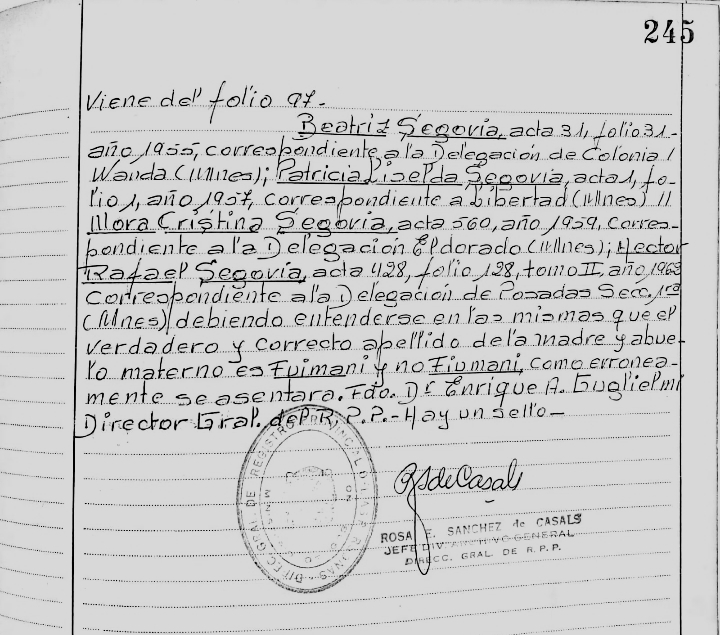 245
Viene del folio 97.-
Beatriz Segovia, acta 31, folio 31-
año 1955, correspondiente a la Delegación de Colonia /
Wanda (Mnes); Patricia Liselda Segovia, acta 1, fo-
lio 1, año 1957, correspondiente a Libertad (Mnes) //
Mora Cristina Segovia, acta 560, año 1959, corres-
pondiente a la Delegación Eldorado (Mnes); Hector
Rafael Segovia, acta 428, folio 128, tomo II, año 1963
Correspondiente a la Delegación de Posadas Secc. 1ra
(Mnes) debiendo entenderse en las mismas que el
verdadero y correcto apellido de la madre y abue-
lo materno es Fuimani y no Fiumani, como erronea-
mente se asentara. Fdo. Dr Enrique A. Guglielmi
Director Gral. del R.P.P.- Hay un sello-
DIREC. GRAL. DE REGISTRO PROVINCIAL
RSdeCasals
ROSA E. SANCHEZ de CASALS
JEFE DIV. ARCHIVO GENERAL
DIRECC. GRAL. DE R.P.P.